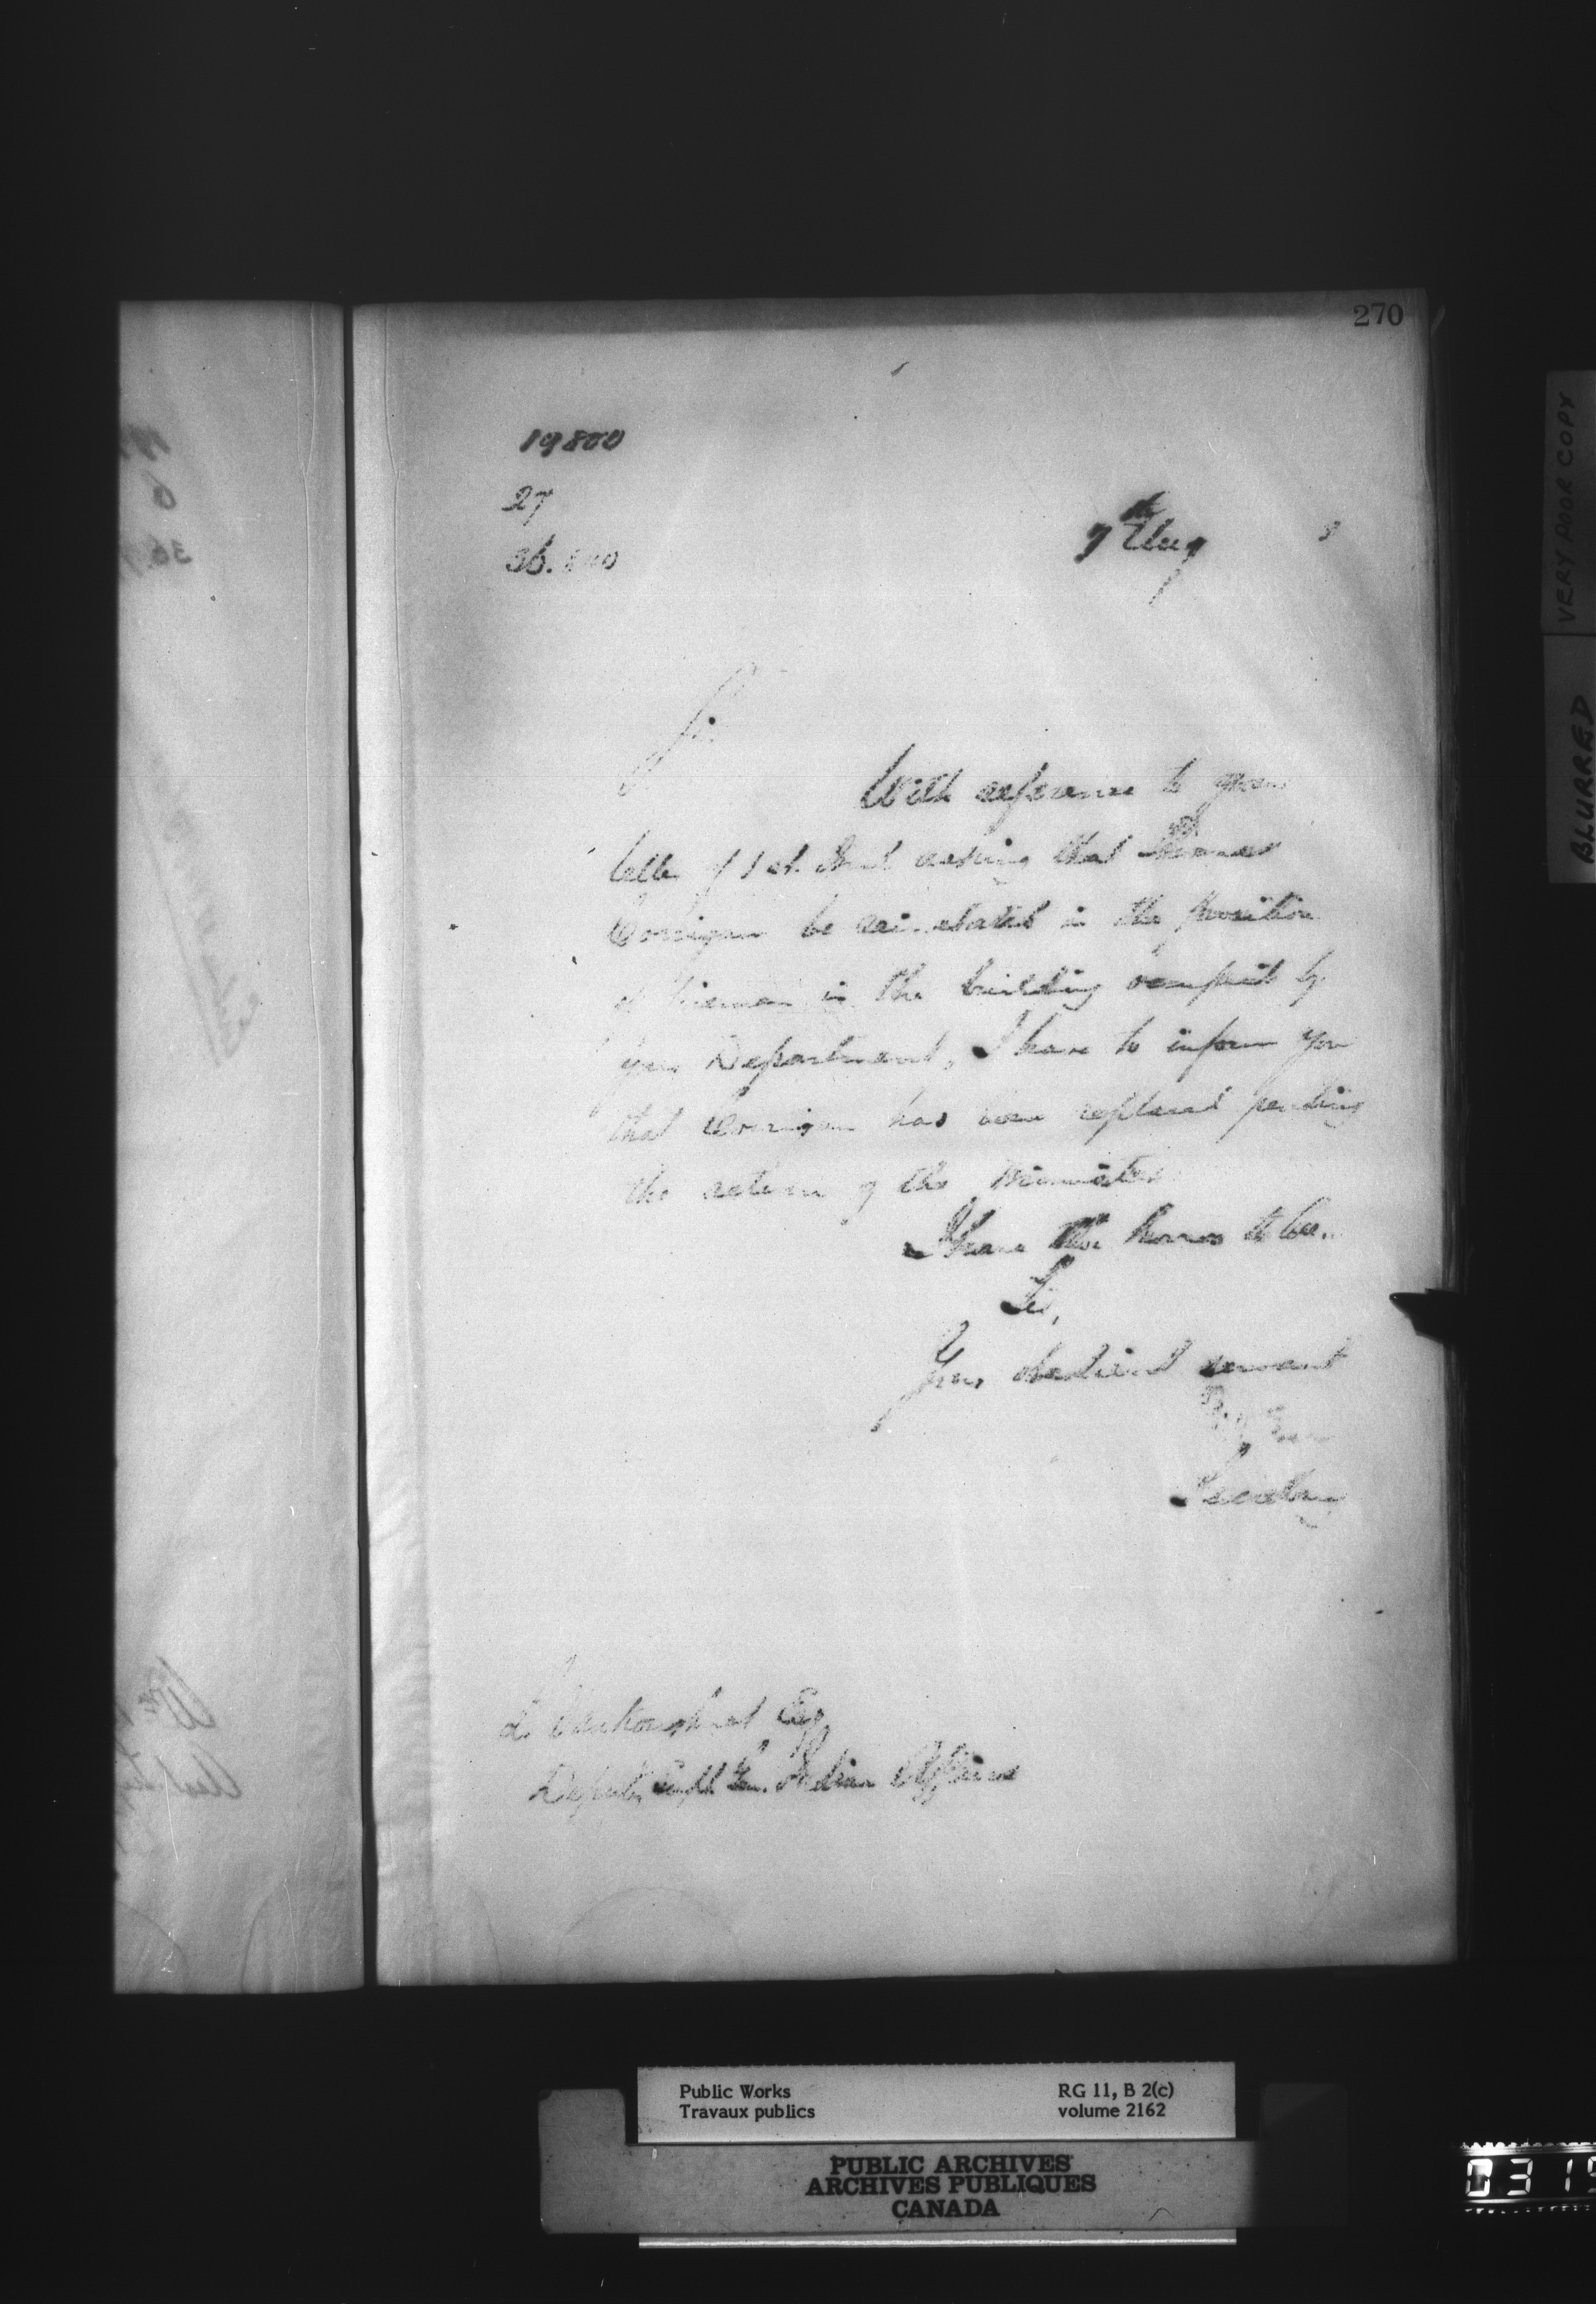 270
19800
27
36.
7th Aug 3
Sir
With reference to your
letter of 1st. Inst asking that Thomas
Corrigan be reinstated in the position
of fireman in the building occupied by
your Department, I have to inform you
that Corrigan has been replaced pending
the return of the Minister
I have the honor to be.
Sir,
Your obedient servant
Secretary
L. Vankoughnet Esq
Deputy Supt. Gen. Indian Affairs
VERY POOR COPY
BLURRED
Public Works
Travaux publics
RG 11, B 2(c)
volume 2162
PUBLIC ARCHIVES
ARCHIVES PUBLIQUES
CANADA